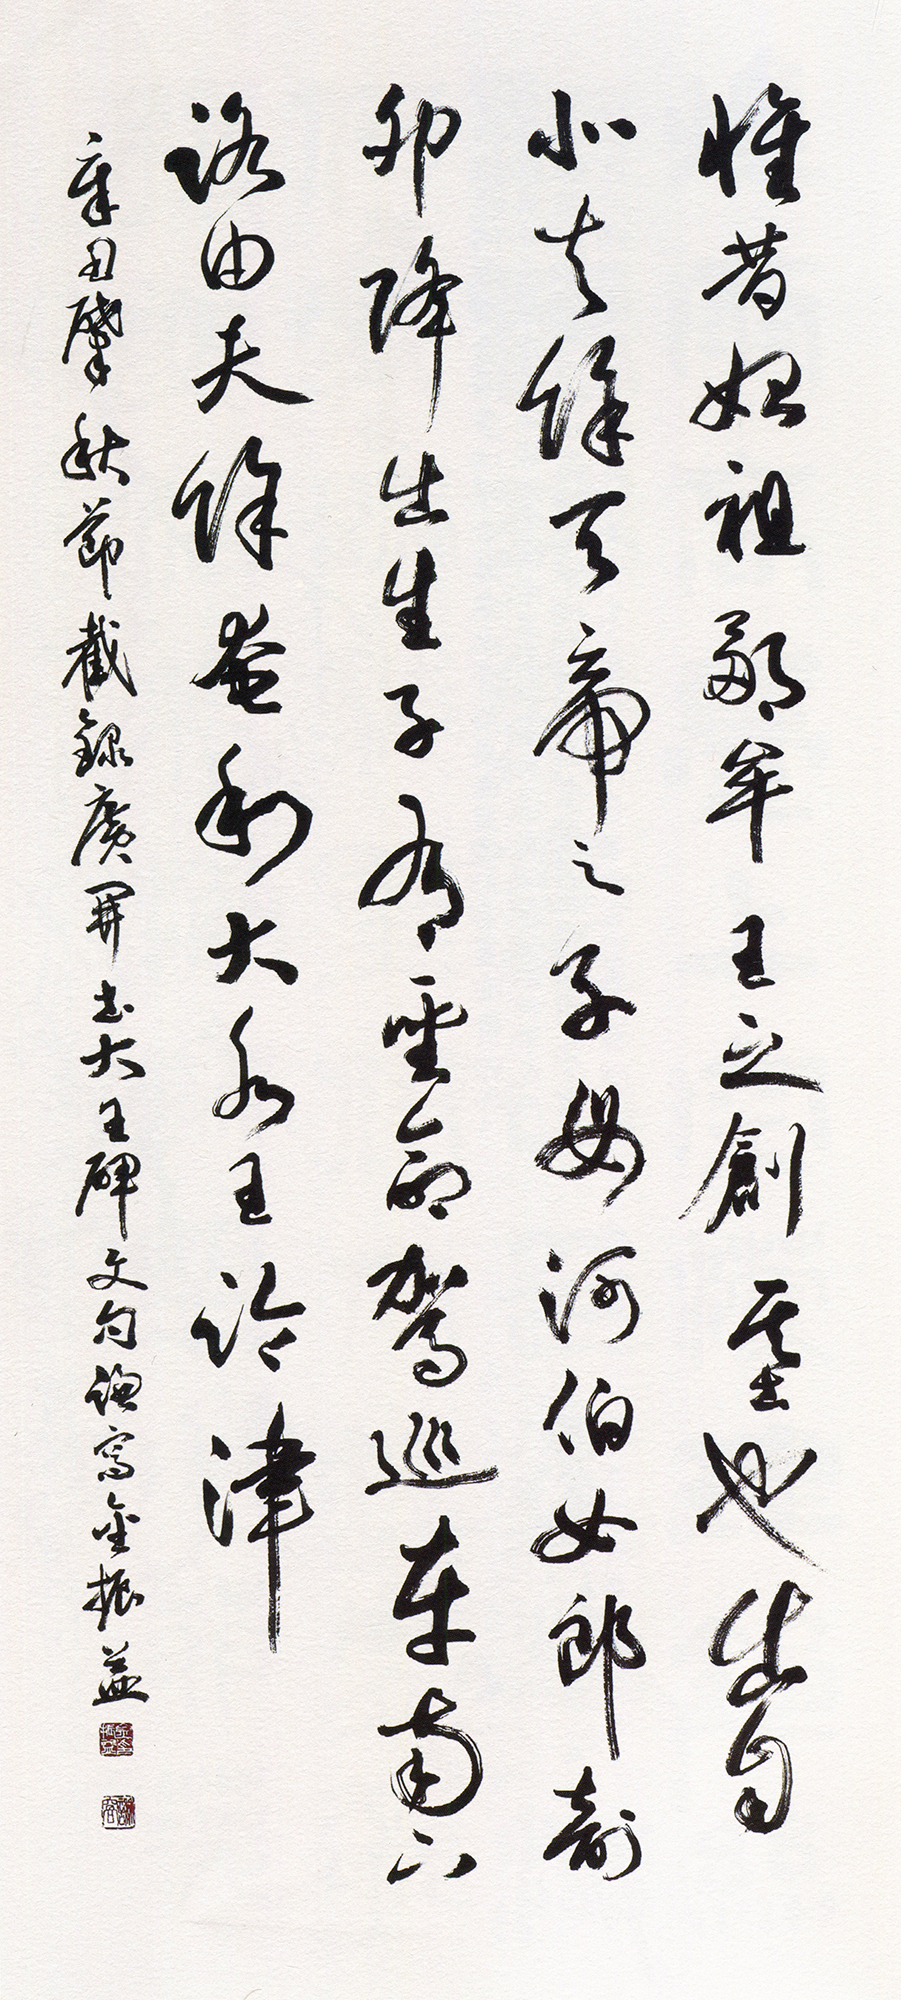 惟昔始祖鄒牟王之創基也出自
北夫餘天帝之子母河伯女郎剖
卵降出生子有聖命駕巡車南下
路由夫餘奄利大水王臨津
辛丑肇秋節截錄廣開土大王碑文句謹寫金振益